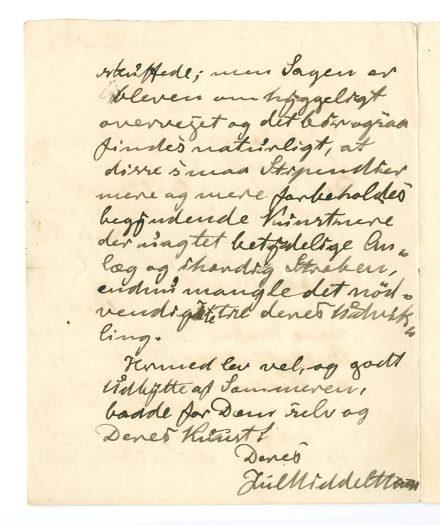 skuffede; men Sagen er
bleven omhyggeligt
overveiet og det bör ogsaa
findes naturligt, at
disse smaa Stipendier
mere og mere forbeholdes
begyndende Kunstnere
der uagtet betydelige An-
læg og ihærdig Stræben,
endnu mangle det nöd-
vendigste til deres Udvik-
ling.
Hermed lev vel, og godt
Udbytte af Sommeren,
baade for Dem selv og
Deres Kunst!
Deres
Jul Middelthun